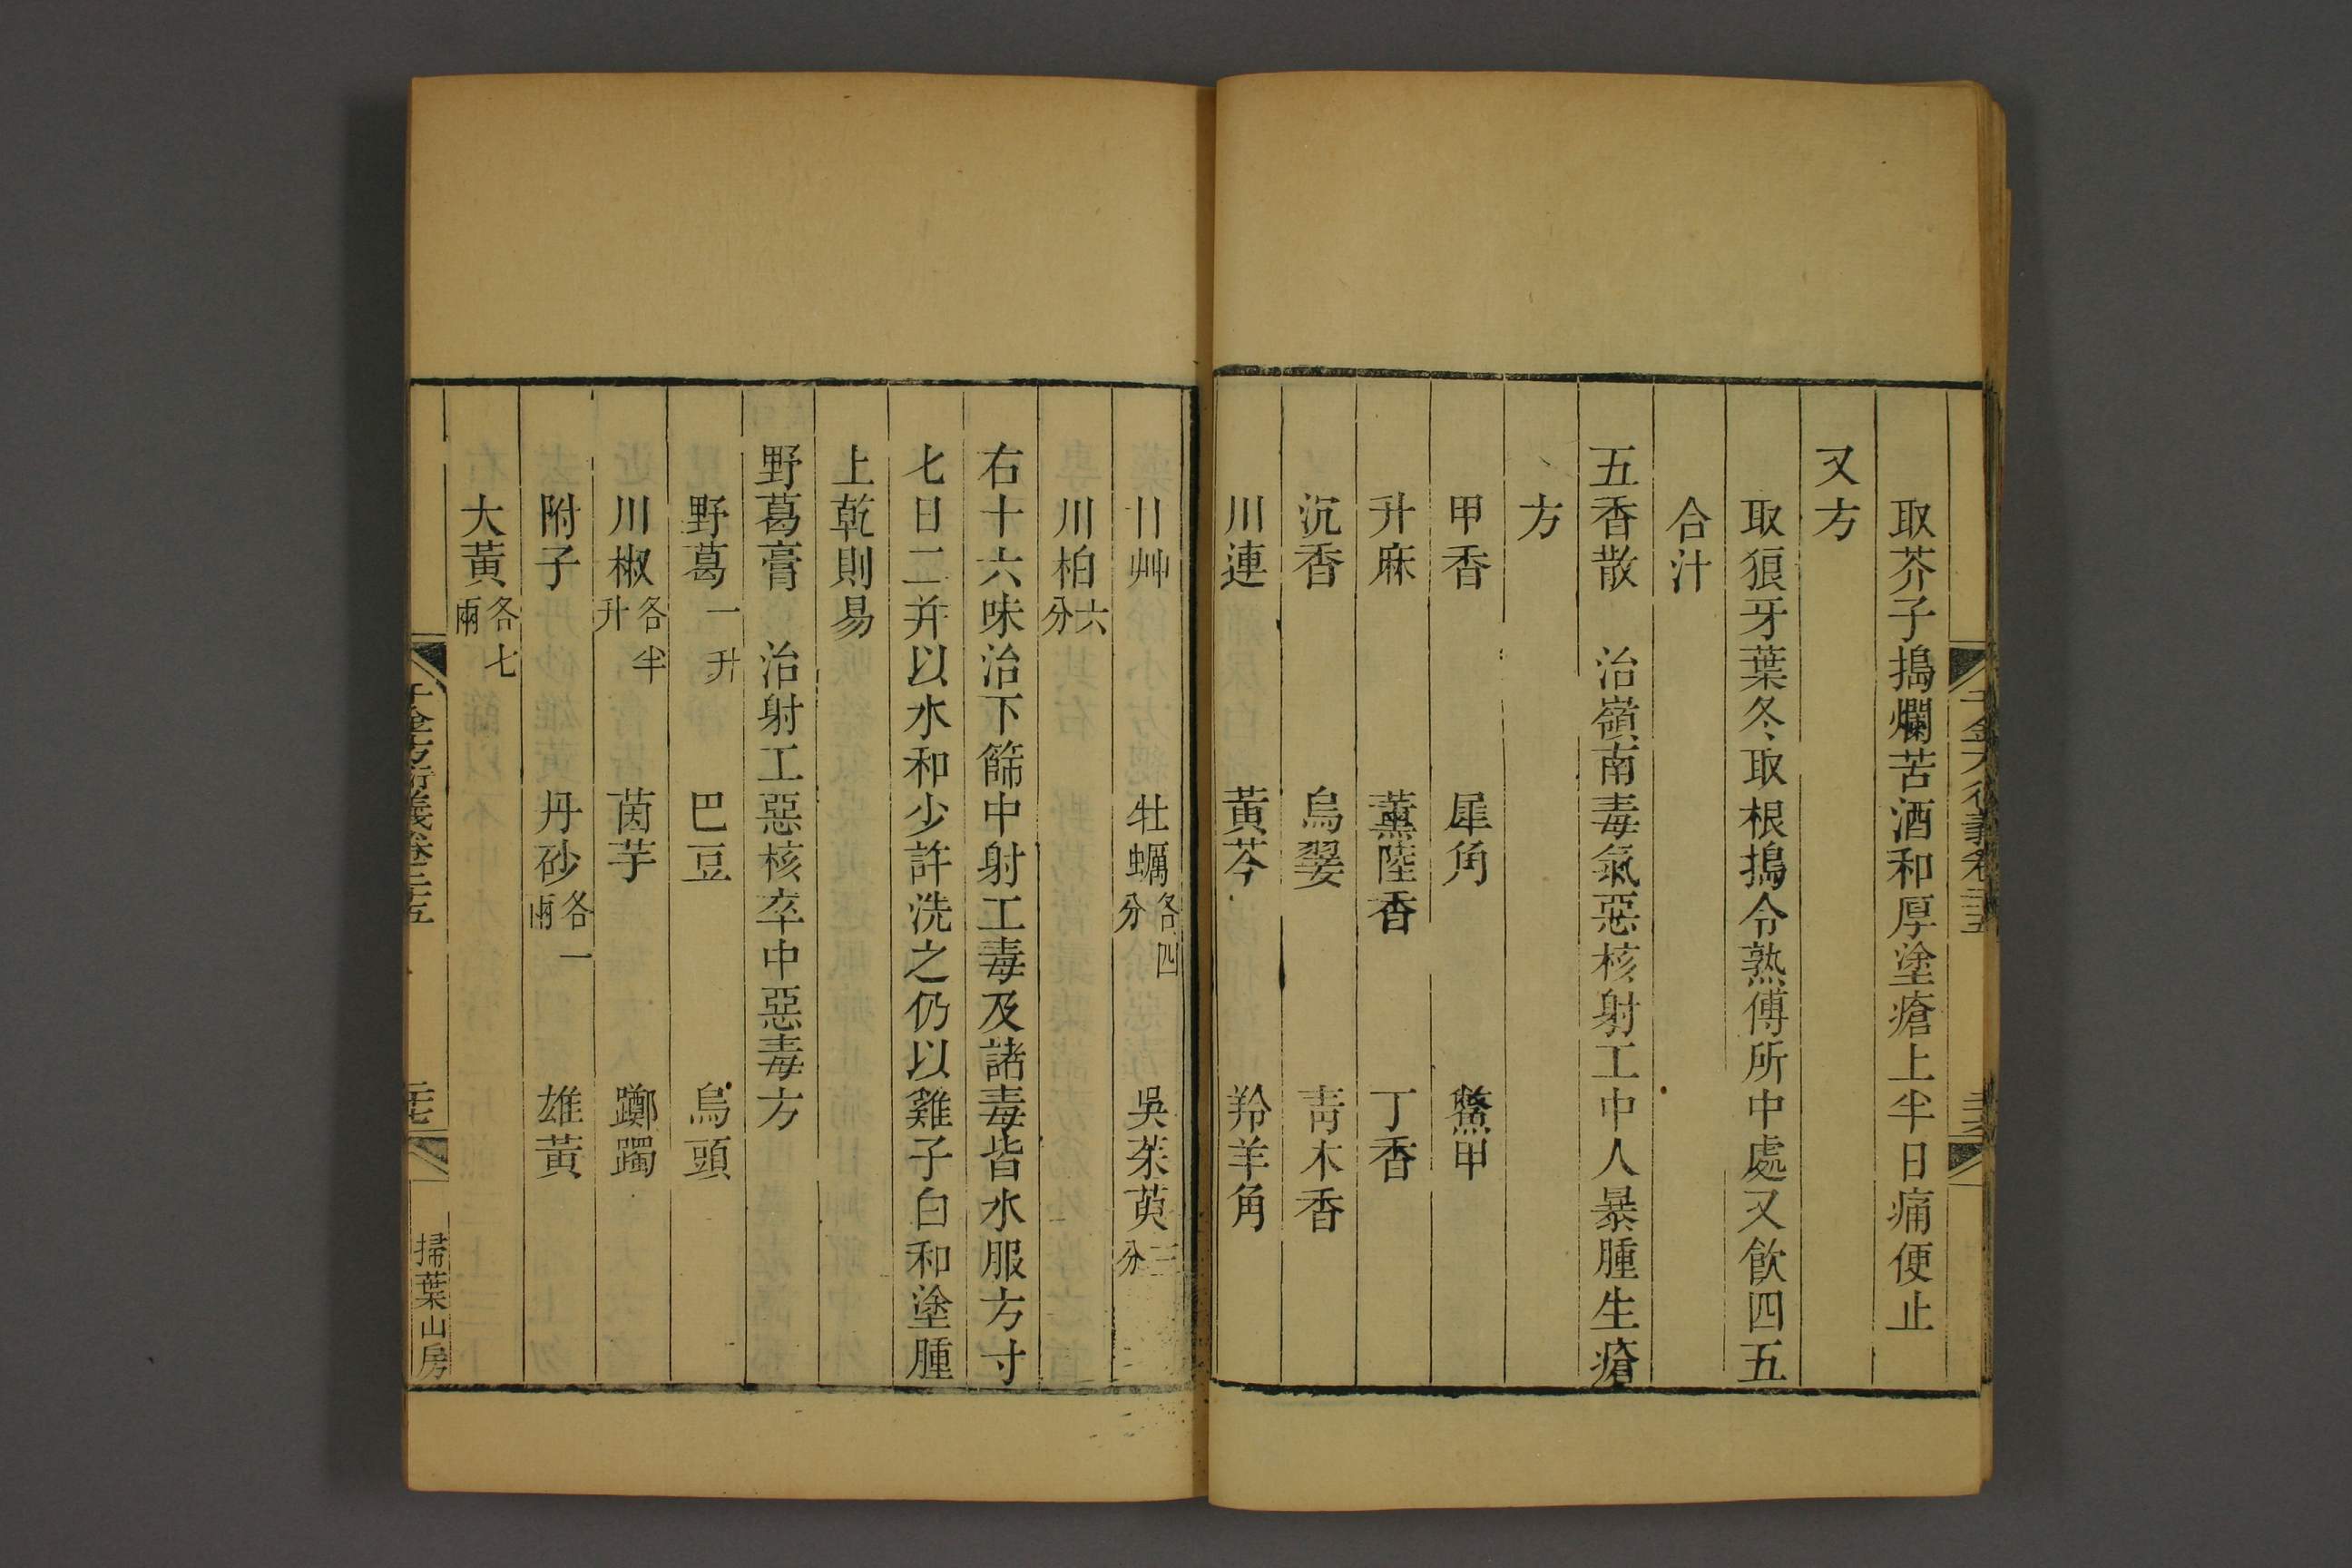 取芥子搗爛苦酒和厚塗瘡上半日痛便止
又方
取狼牙葉冬取根搗令熟傅所中處又飲四五
合汁
五香散 治嶺南毒氣惡核射工中人暴腫生瘡
方
甲香 犀角 鱉甲
升麻 薰陸香 丁香
沉香 烏翣 青木香
川連 黃芩 羚羊角
甘艸 牡蠣各四分 吳茱萸三分
川柏六分
右十六味治下篩中射工毒及諸毒皆水服方寸
七日二并以水和少許洗之仍以雞子白和塗腫
上乾則易
野葛膏 治射工惡核卒中惡毒方
野葛一升 巴豆 烏頭
川椒各半升 茵芋 躑躅
附子 丹砂各一兩 雄黃
大黃各七兩
千金方衍義卷二十五 二十七
掃葉山房